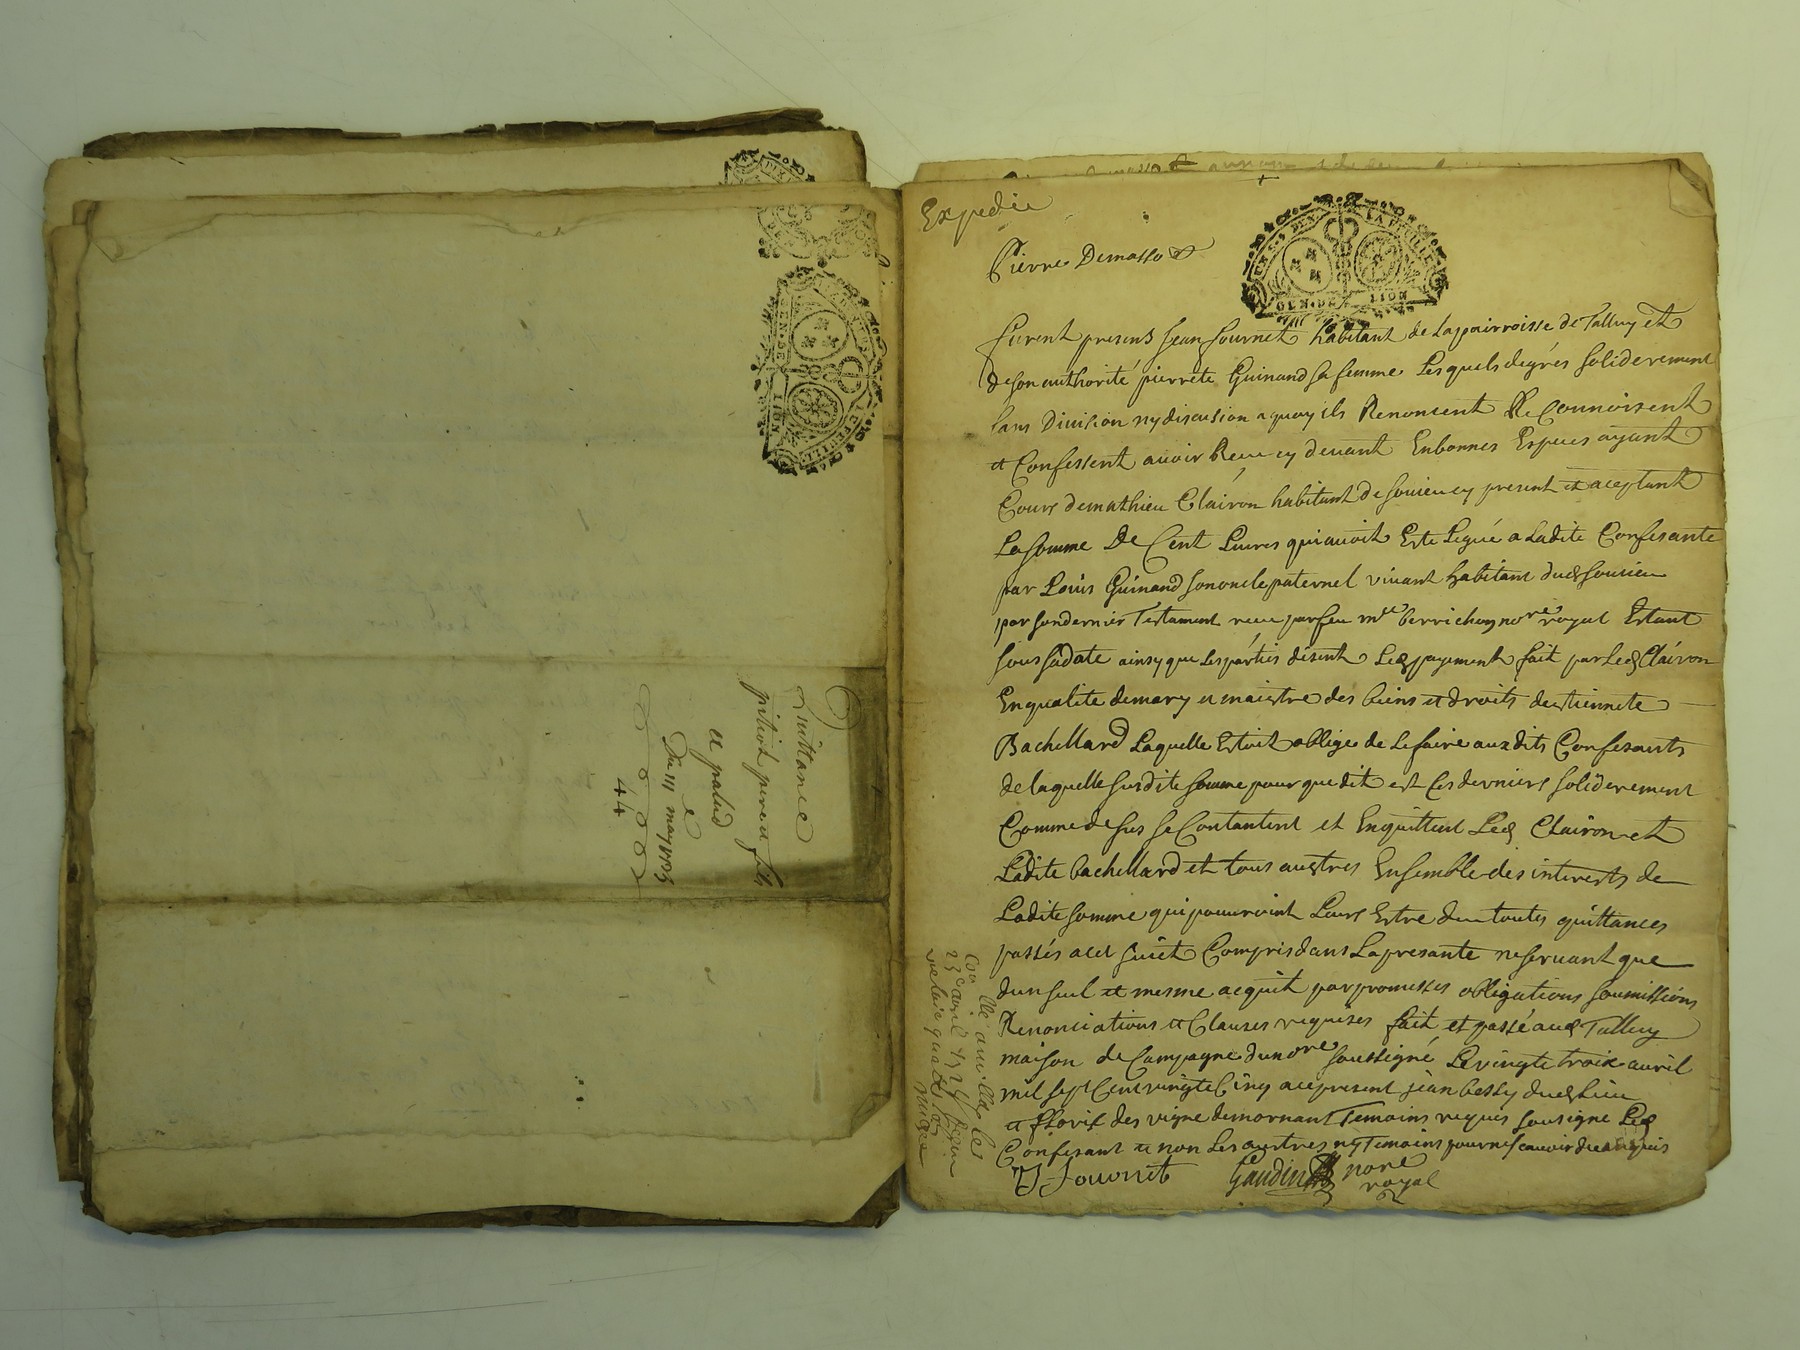 Quittance
pitiot pere et fils
et palud
Du 111 may 1725
44
Expedie
Pierre Demasso
GEN. DE LION
furent presens Jean Journet habitant de La pairroisse de Talluy et
de son authorité pierrete Guinand sa femme Lesquels degrés soliderement
sans Division ny discusion a quoy ils Renoncent Reconnoissent
et Confessent avoir Receu cy devant En bonnes Especes ayant
Cours de mathieu Clairon habitant de soucieu cy present et aceptant
La somme De Cent Livres qui avoit Esté Legué a Ladite Confesante
par Louis Guinand son oncle paternel vivant habitant dud soucieu
par son dernier Testament receu par feu me berrichon nore royal Estant
sous sa date ainsy que Les parties disent Led payement fait par Led Clairon
En qualite de mary et maistre des biens et droits destiennete
Bachellard Laquelle Estoit oblige de Le faire aux dits Confesants
de laquelle susdite somme pour que dit est Ces derniers soliderement
Comme desus se Contantent et Enquittent Led Clairon et
Ladite bachellard et tous austres Ensemble des interests de
Ladite somme qui pouuroint Leurs Estre du toutes quittances
passés a cet suiet Compris dans La presante ne servant que
dun seul et mesme acquit par promesses obligations soumissions
Renonciations et Clauses requises fait et passé aud Talluy
maison de Campagne du nore soussigné Le vingte troix avril
mil sept Cent vingte Cinq avec present jean bessy dud Lieu
et floris des vigne de mornant Temoins requis sousigne Led
Confesant et non Les austres ny Temoins pour ne scavoir de ce enquis
J Journet Gaudin nore
royal
Con lle au
23e avril 1725